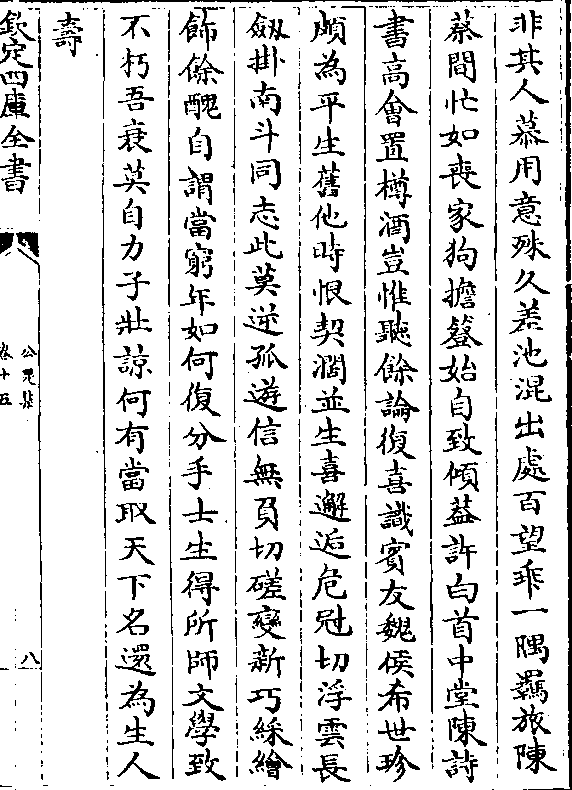 非其人慕用意殊久差池混出處百望乖一隅羈旅陳
蔡間忙如喪家狗擔簦始自致傾葢許白首中堂陳詩
書高會置樽酒豈惟聽餘論復喜識賓友魏侯希世珍
頗為平生舊他時恨契濶並生喜邂逅危冠切浮雲長
劔掛南斗同志此莫逆孤遊信無負切磋變新巧綵繪
飾餘醜自謂當窮年如何復分手士生得所師文學致
不朽吾衰莫自力子壯諒何有當取天下名還為生人
壽
欽定四庫全書
公是集
卷十五
八